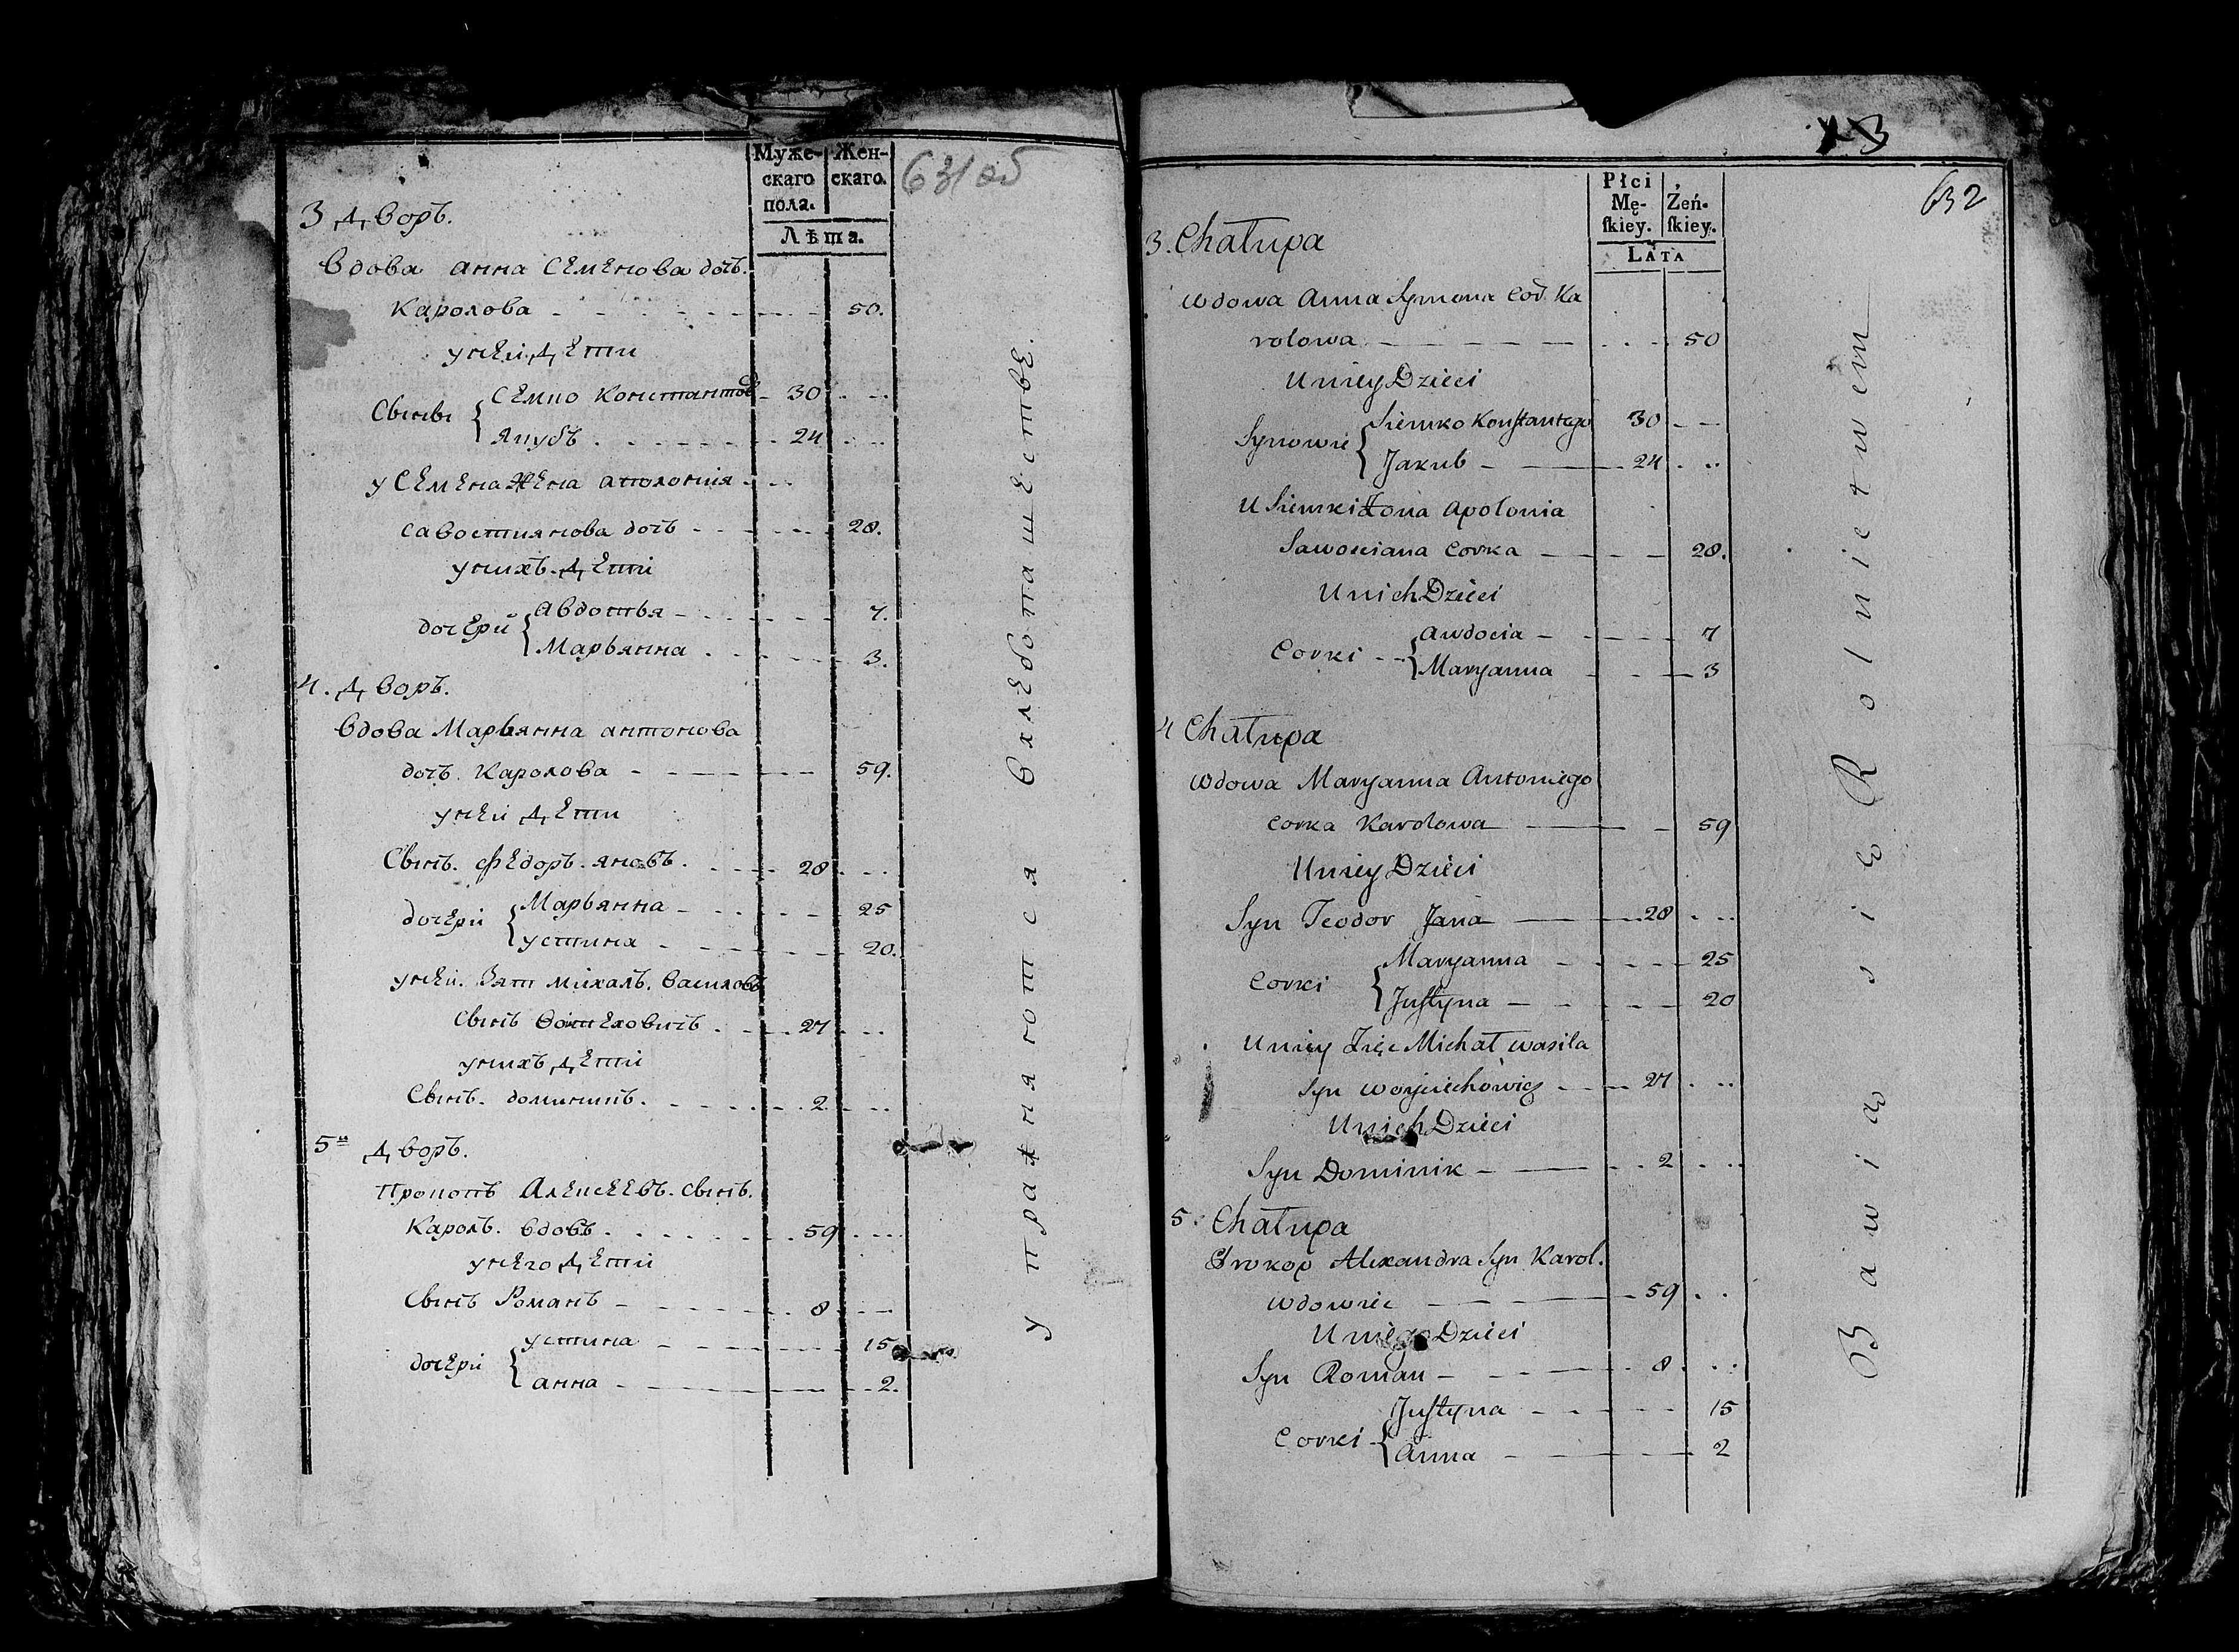 Муже-
скаго
пола.
Жен-
скаго.
Лѣта.
631 об
3 Дворъ.
Вдова Анна Семенова дочь.
Каролова 50.
у ней Дети
Сыны { Семко Константов 30
Якубъ 24
у Семена жена Аполонія
Савостиянова дочь 28.
у нихъ Дети
дочери { Авдотья 7.
Марьянна 3.
4. Дворъ.
Вдова Марьянна Антонова
дочь. Каролова 59.
у ней Дети
Сынъ. Федоръ. Яновъ. 28
дочери { Марьянна 25
Устина 20.
у ней. Зят Михалъ. Василовъ
Сынъ Войтеховичъ 27
у нихъ Дети
Сынъ. Доминикъ. 2
5й Дворъ.
Прокопъ Алексеевъ. Сынъ.
Кароль. вдовъ. 59
у него Дети
Сынъ Романъ 8
дочери { Устина 15
Анна 2.
упражняются в хлебопашестве.
3
632
Płci
Mę-
ſkiey.
Żeń-
ſkiey.
LATA
3. Chałupa
Wdowa Anna Symona Cor. Ka
rolowa 50
U niey Dzieci
Synowie { Siemko Konſtantego 30
Jakub 24
U Siemki Żona Apolonia
Sawosciana Corka 28.
U nich Dzieci
Corki { Awdocia 7
Maryanna 3
4 Chałupa
Wdowa Maryanna Antoniego
Corka Karolowa 59
U niey Dzieci
Syn Teodor Jana 28
Corki { Maryanna 25
Juſtyna 20
U niey Zięc Michał Wasila
Syn Woyciechowicz 27
U nich Dzieci
Syn Dominik 2
5. Chałupa
Prokop Alexandra Syn Karol.
Wdowiec 59
U niego Dzieci
Syn Roman 8
Corki { Juſtyna 15
Anna 2
Bawią się Rolnictwem